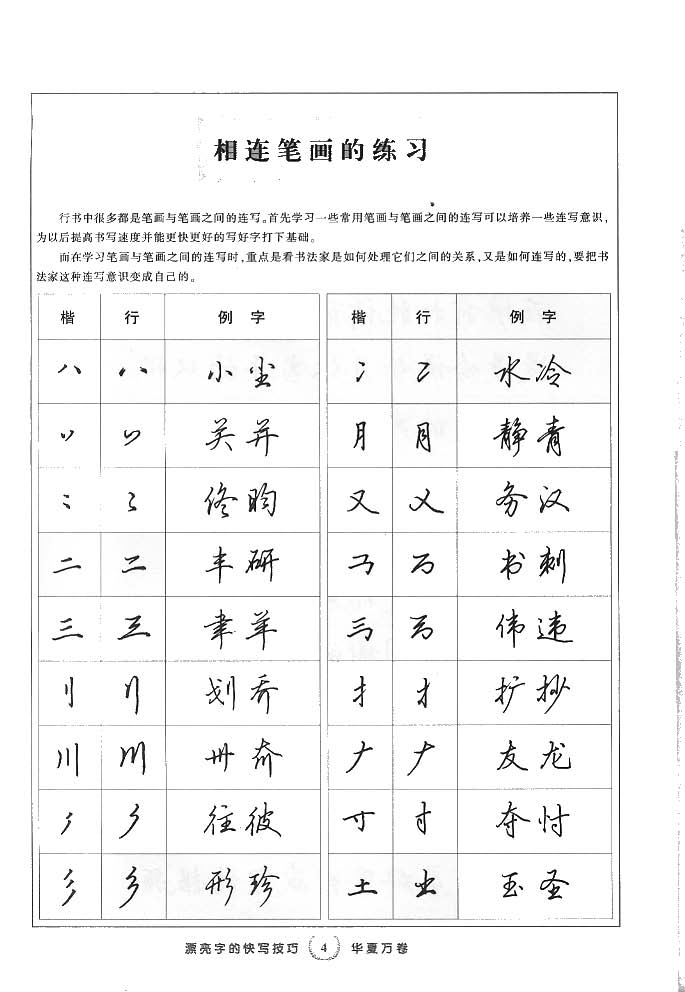 相连笔画的练习
行书中很多都是笔画与笔画之间的连写。首先学习一些常用笔画与笔画之间的连写可以培养一些连写意识，
为以后提高书写速度并能更快更好的写好字打下基础。
而在学习笔画与笔画之间的连写时，重点是看书法家是如何处理它们之间的关系，又是如何连写的，要把书
法家这种连写意识变成自己的。
楷 行 例字 楷 行 例字
八 八 小尘 冫 冫 水冷
丷 丷 关并 月 月 静青
修昫 又 又 务汉
二 二 丰研 书刺
三 三 羊 伟违
刂 刂 划乔 扌 扌 扩抄
川 川 卅奇 𠂇 𠂇 友龙
往彼 寸 寸 夺忖
彡 彡 形珍 土 土 玉圣
漂亮字的快写技巧 4 华夏万卷